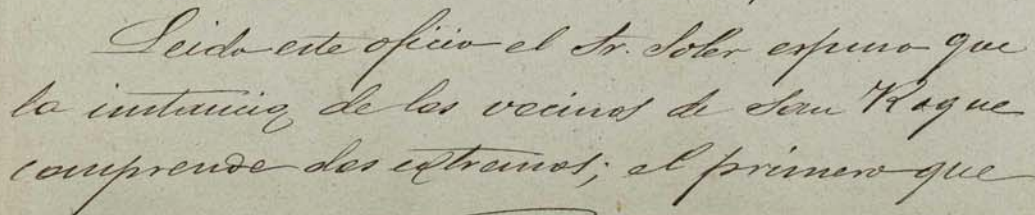 Leido este oficio el Sr. Soler espuso que
la instancia de los vecinos de San Roque
comprende dos extremos; el primero que